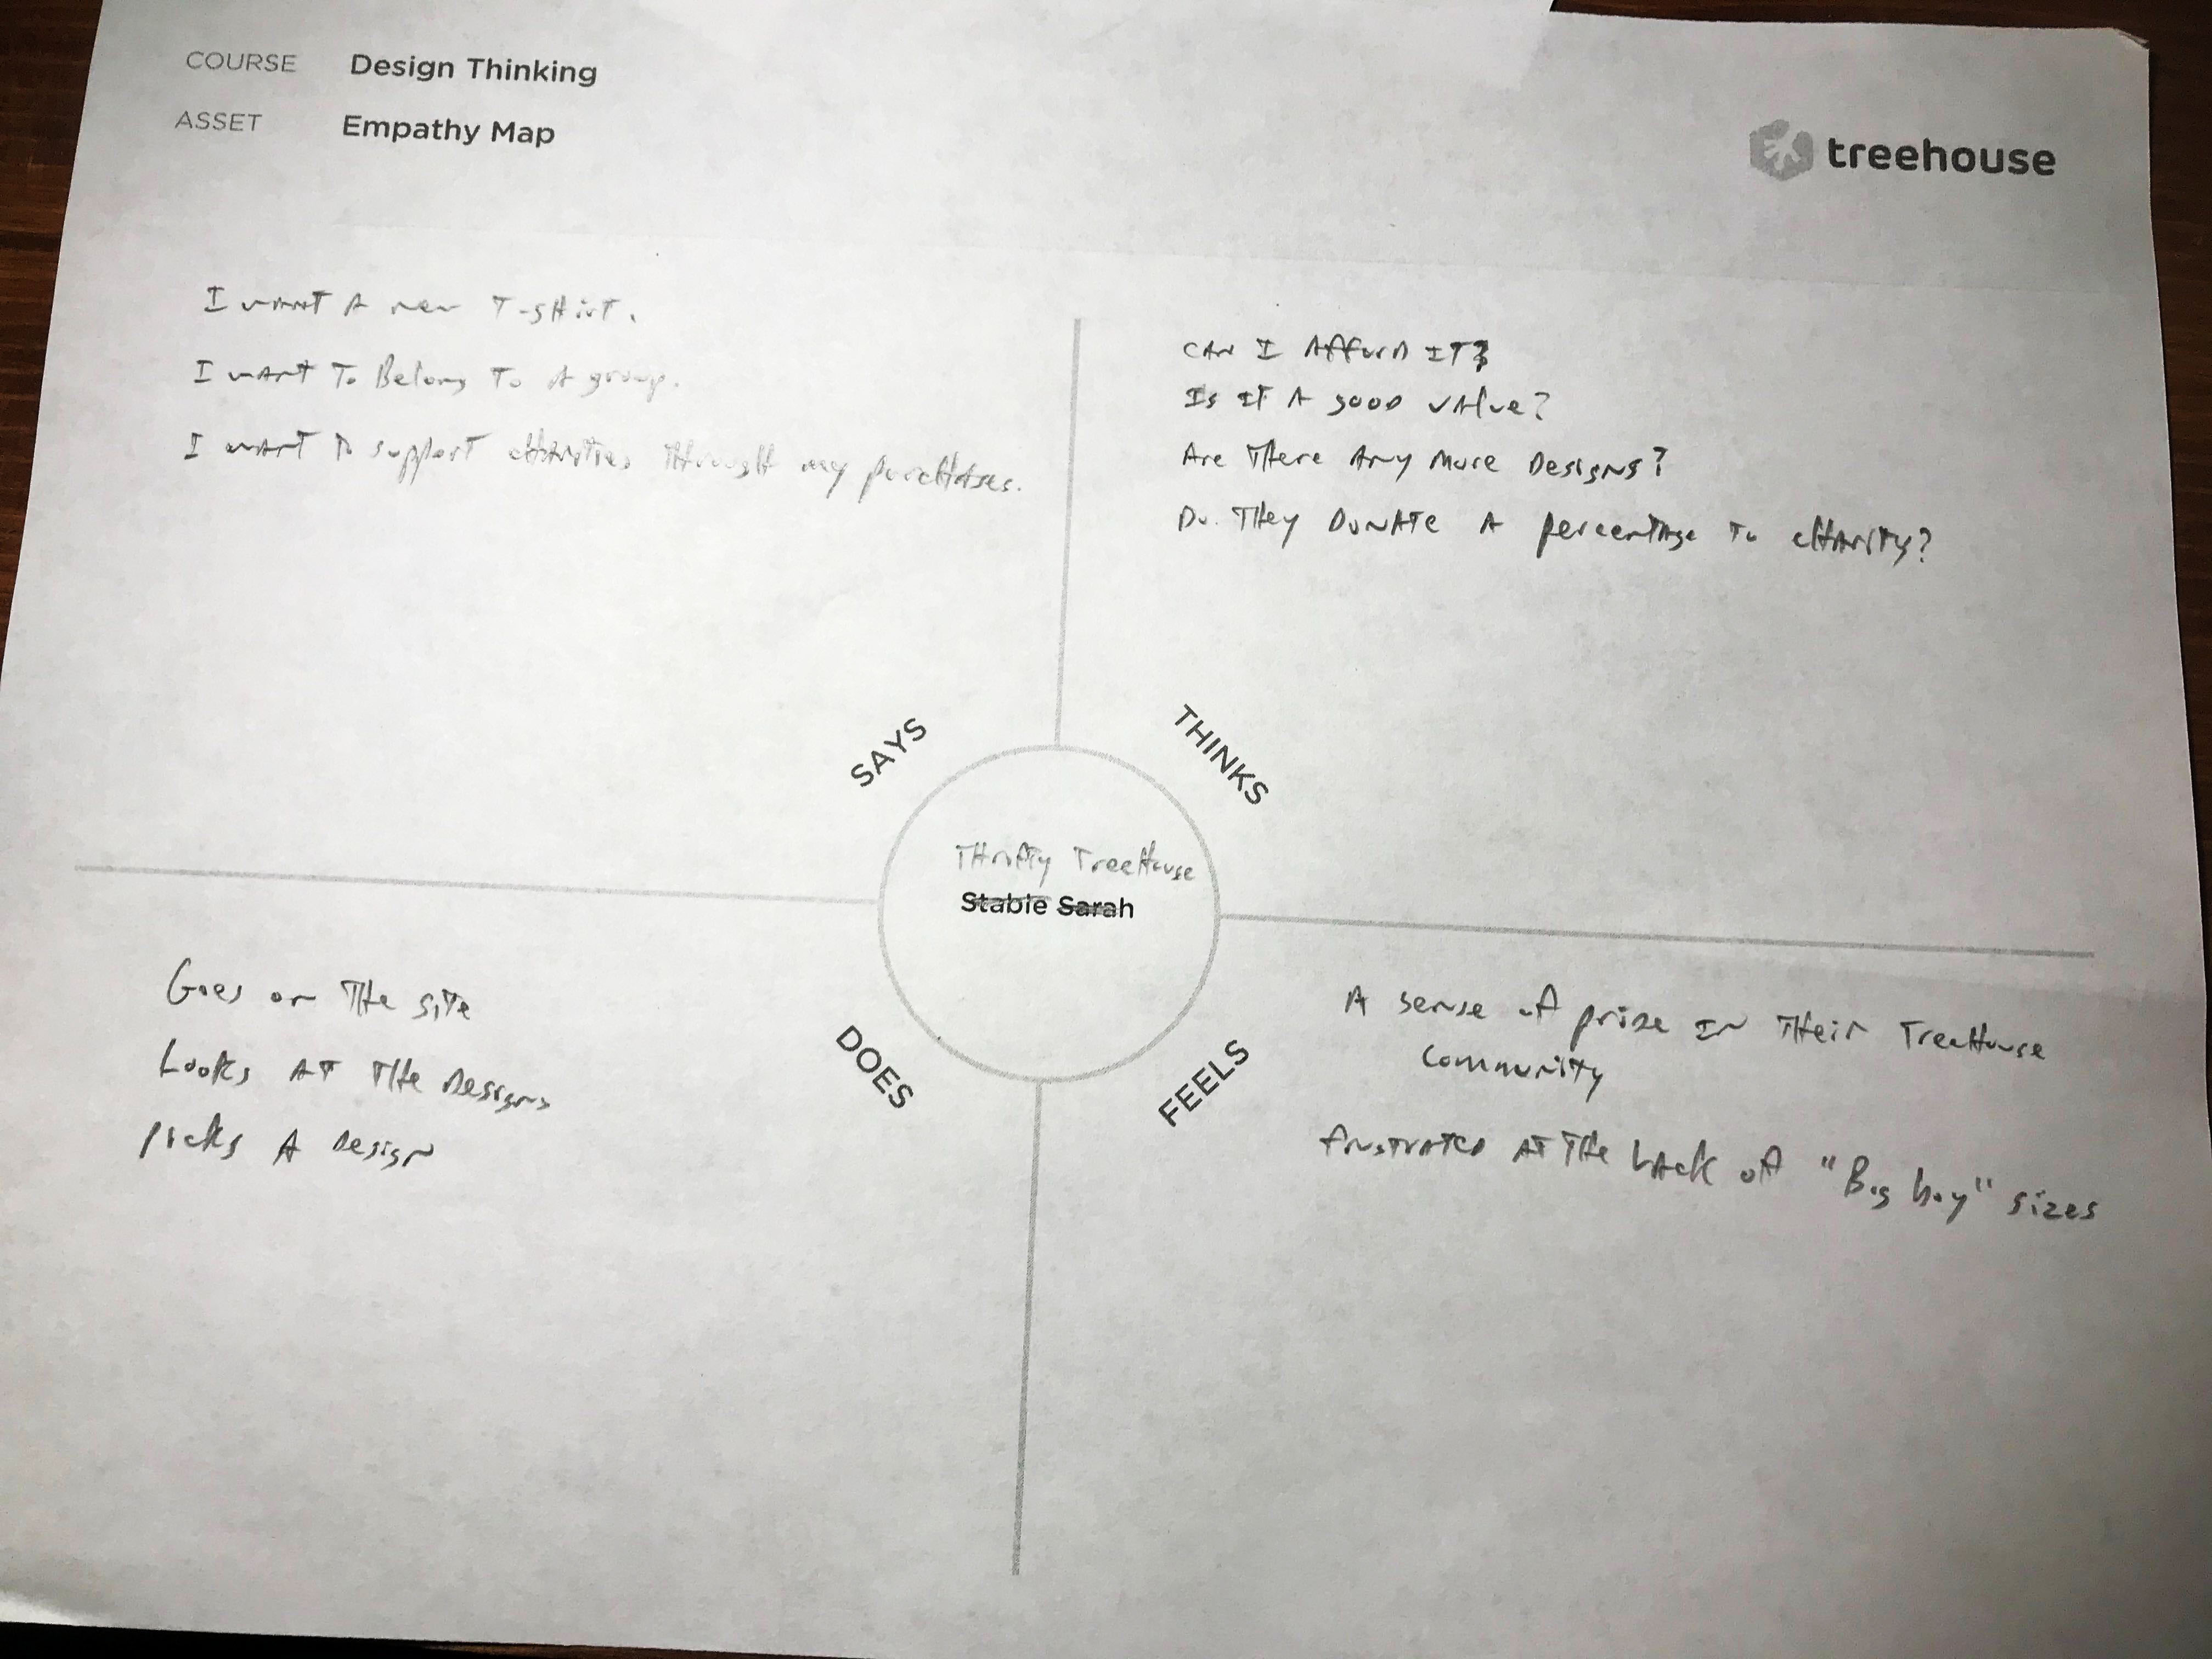 COURSE Design Thinking
ASSET Empathy Map
treehouse
I want A new T-shirt.
I want To Belong To A group.
I want To support charities through my purchases.
SAYS
CAN I Afford IT?
Is IT A good value?
Are There Any More Designs?
Do They Donate A percentage To charity?
THINKS
Thrifty TreeHouse
Stable Sarah
Goes on The site
Looks AT The Designs
picks A Design
DOES
A sense of pride In Their TreeHouse
community
frustrated AT The Lack of "Big boy" sizes
FEELS